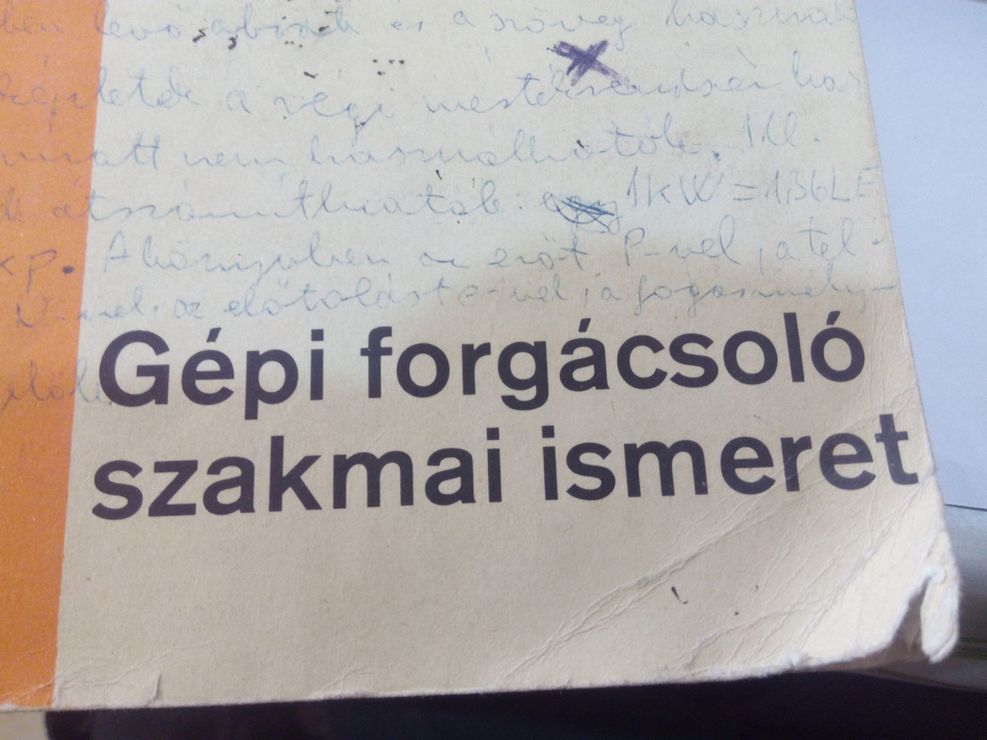 ben levő ábrák és a szöveg használ
képletek a régi mértékrendszer ha
miatt nem használhatók. Ill.
k átszámíthatók: 1kW = 1,36LE
kp. A könyvben az erőt P-vel, a tel-
az előtolást e-vel, a fogásmély-
Gépi forgácsoló
szakmai ismeret